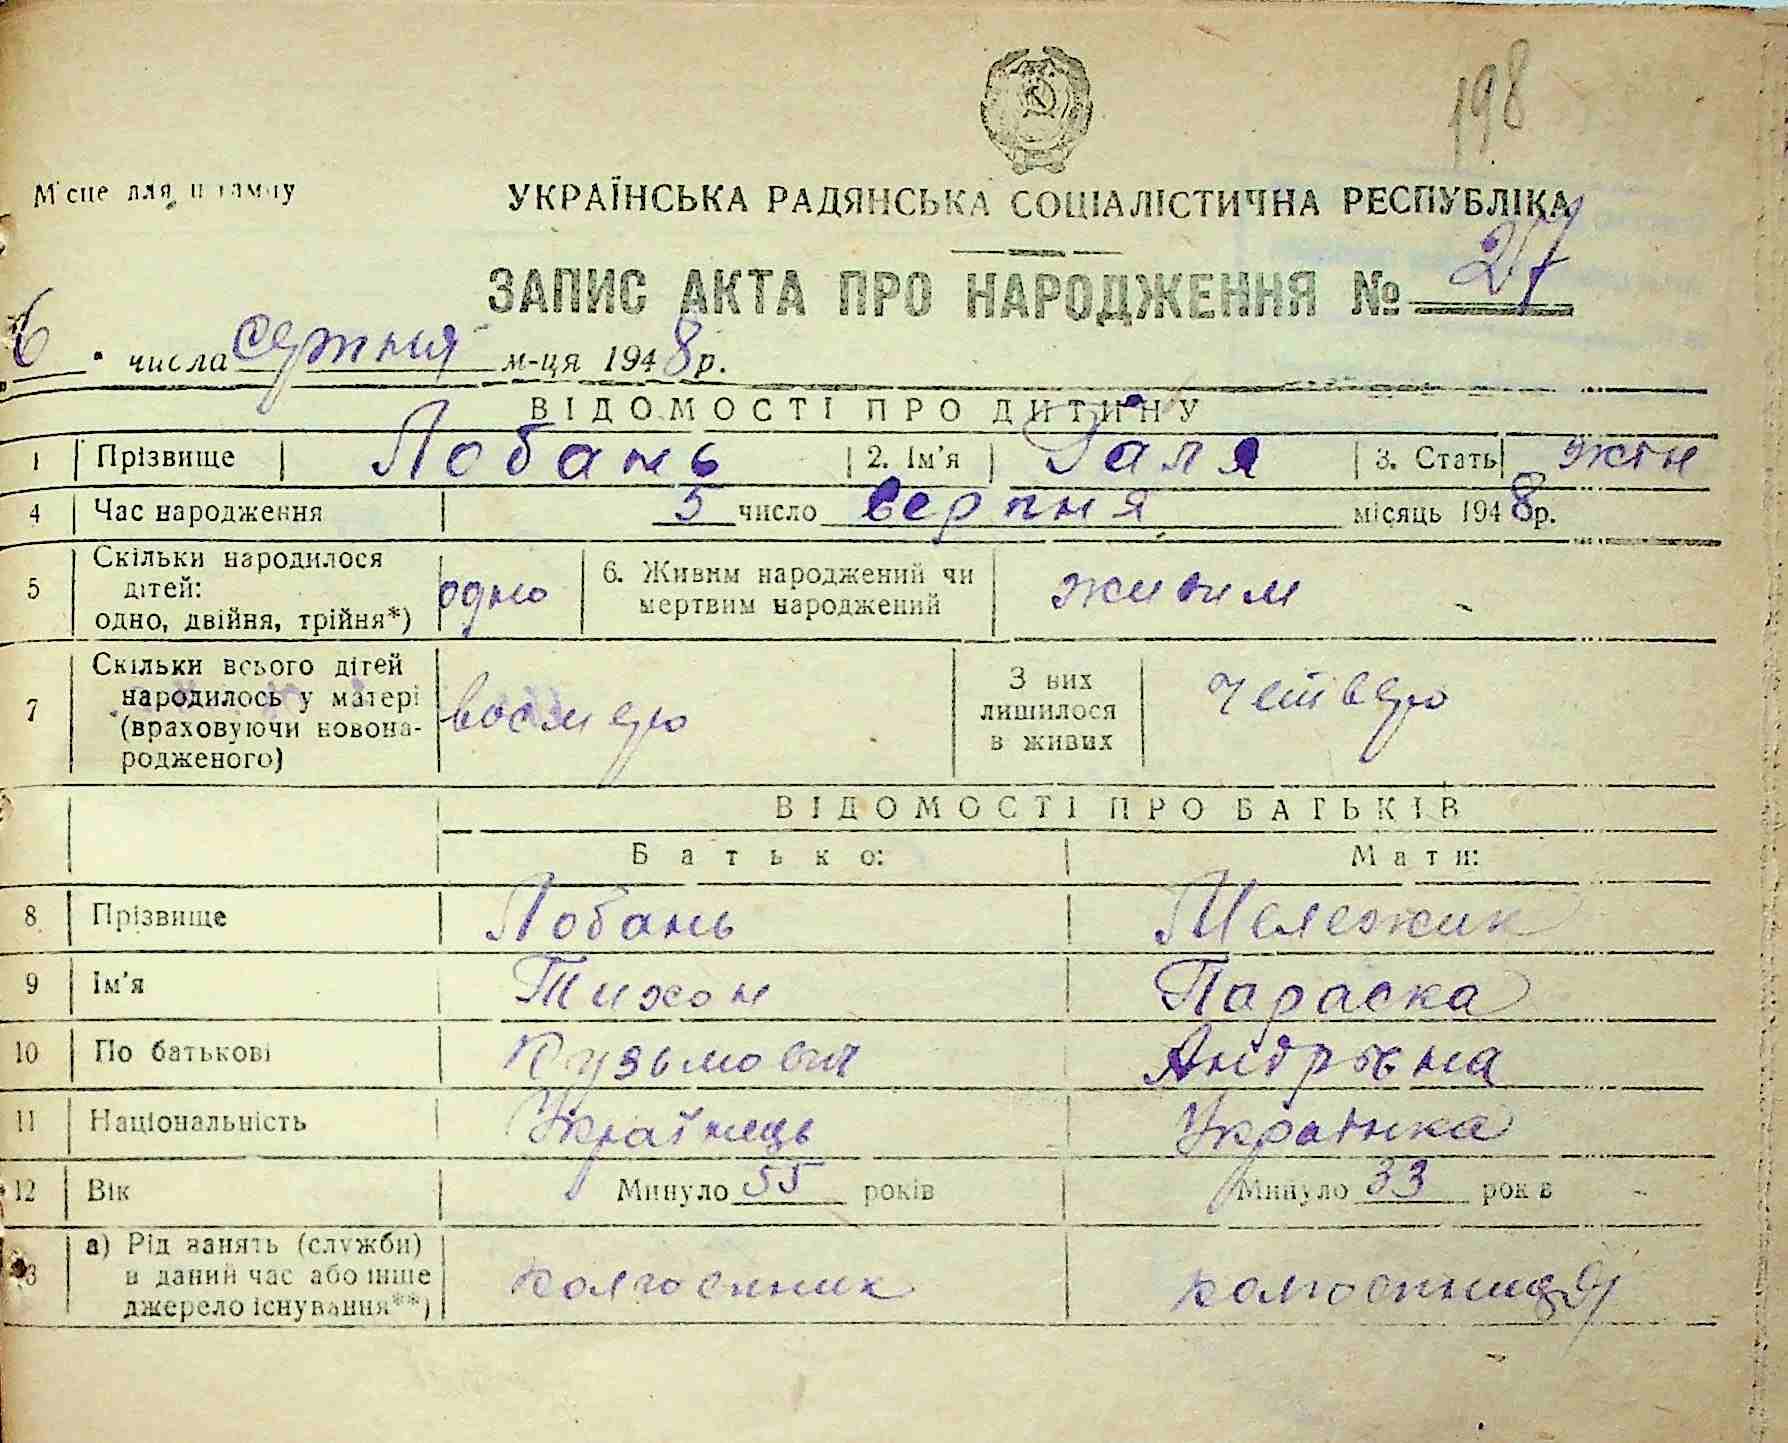 198
Місце для штампу
УКРАЇНСЬКА РАДЯНСЬКА СОЦІАЛІСТИЧНА РЕСПУБЛІКА
ЗАПИС АКТА ПРО НАРОДЖЕННЯ № 27
6 числа серпня м-ця 1948 р.
ВІДОМОСТІ ПРО ДИТИНУ
1 Прізвище Лобань 2. Ім'я Галя 3. Стать жін
4 Час народження 5 число серпня місяць 1948 р.
5 Скільки народилося дітей: одно, двійня, трійня*) одно 6. Живим народжений чи мертвим народжений живим
7 Скільки всього дітей народилось у матері (враховуючи новонародженого) восмеро З них лишилося в живих четверо
ВІДОМОСТІ ПРО БАТЬКІВ
Батько: Мати:
8 Прізвище Лобань Мележик
9 Ім'я Тихон Параска
10 По батькові Кузьмович Андрівна
11 Національність Українець Українка
12 Вік Минуло 55 років Минуло 33 років
13 а) Рід занять (служби) в даний час або інше джерело існування**) колгоспник колгоспниця